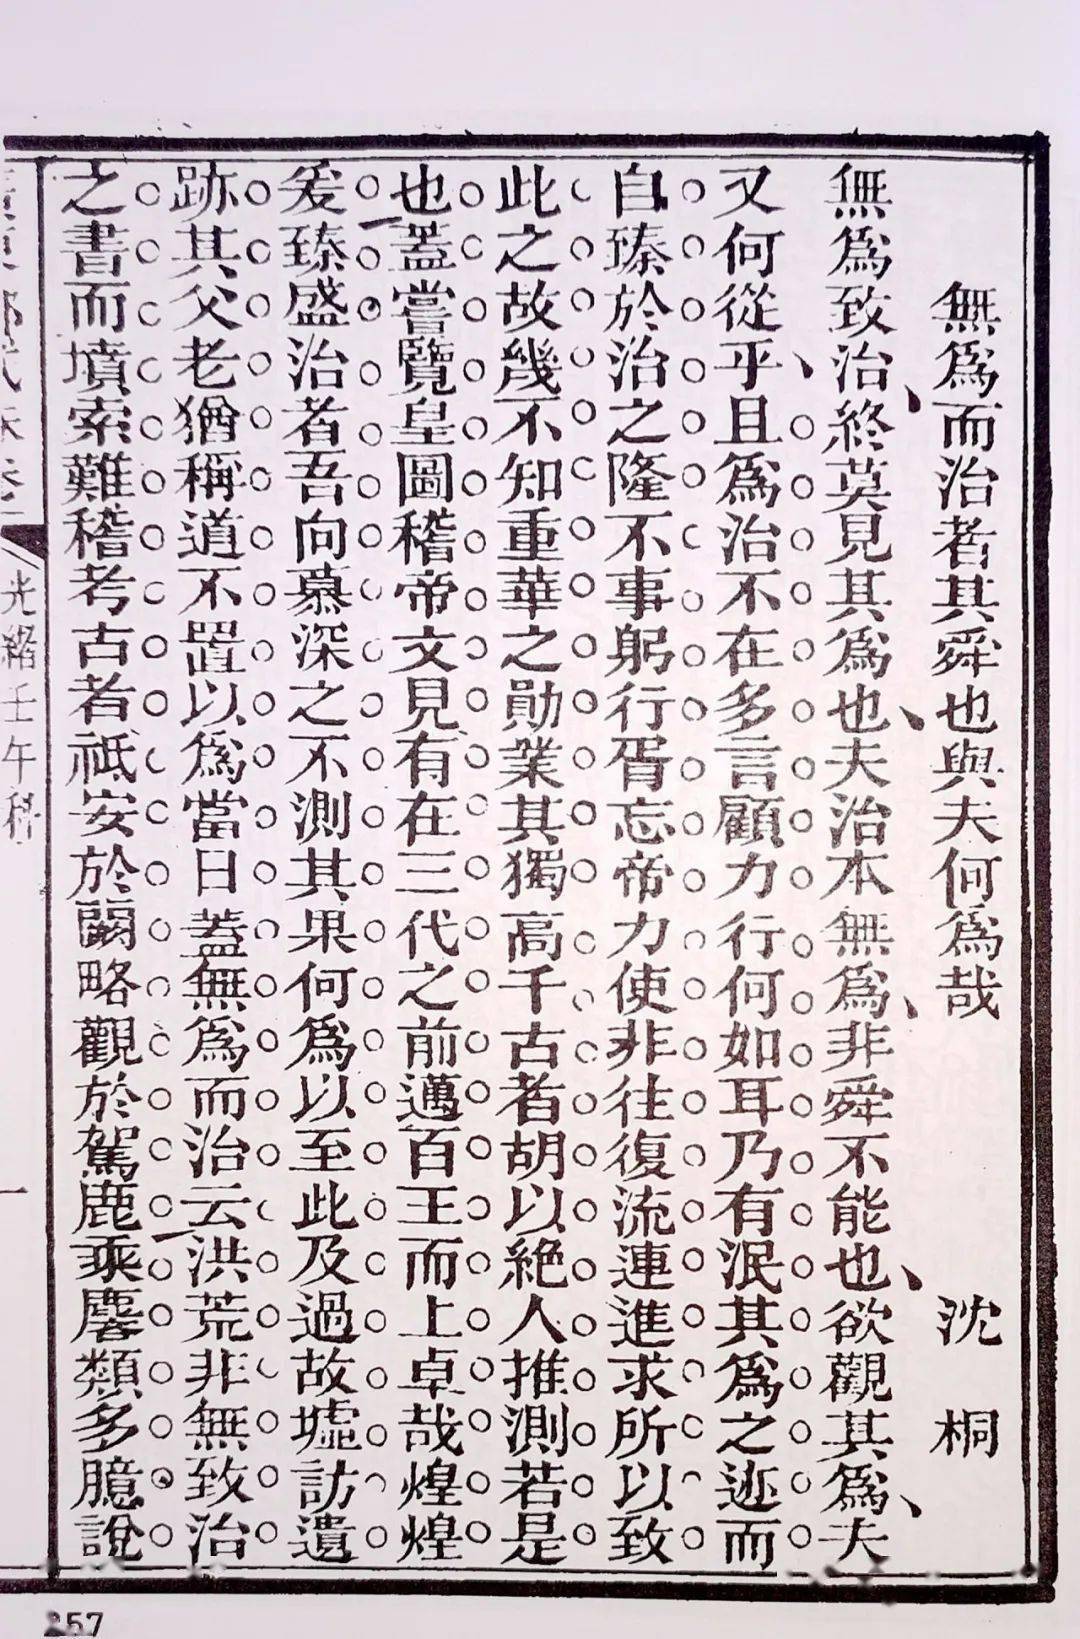 無爲而治者其舜也與夫何爲哉
沈桐
無爲致治終莫見其爲也夫治本無爲非舜不能也欲觀其爲夫
又何從乎且爲治不在多言顧力行何如耳乃有泯其爲之迹而
自臻於治之隆不事躬行胥忘帝力使非往復流連進求所以致
此之故幾不知重華之勛業其獨高千古者胡以絕人推測若是
也蓋嘗覽皇圖稽帝文見有在三代之前邁百王而上卓哉煌煌
爰臻盛治者吾向慕深之不測其果何爲以至此及過故墟訪遺
跡其父老猶稱道不置以爲當日蓋無爲而治云洪荒非無致治
之書而墳索難稽考古者祗安於闕略觀於駕鹿乘麐類多臆說
光緒壬午科
一
57